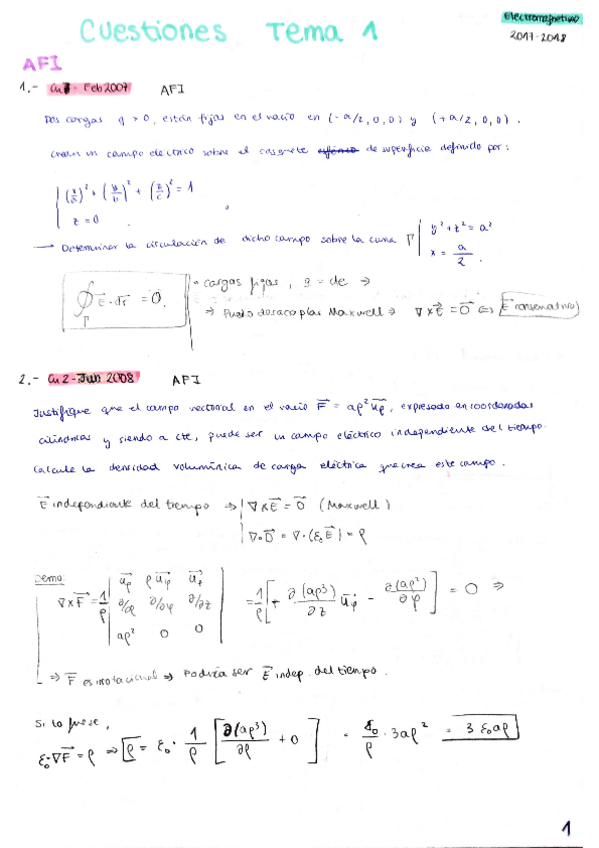 Electromagnetismo
Cuestiones Tema 1
2017-2018
AFI
1.- Cu - Feb 2007 AFI
Dos cargas q > 0, están fijas en el vacío en (-a/2, 0, 0) y (+a/2, 0, 0).
crean un campo eléctrico sobre el casquete de superficie definido por:
(x/a)² + (y/b)² + (z/c)² = 1
z = 0
→ Determinar la circulación de dicho campo sobre la curva Γ | y² + z² = a²
x = a/2.
∮_Γ E⃗·dr⃗ = 0.
cargas fijas, q = cte ⇒
⇒ Puedo desacoplar Maxwell ⇒ ∇×E⃗ = 0⃗ ⇔ E⃗ conservativo
2.- Cu 2 - Jun 2008 AFI
Justifique que el campo vectorial en el vacío F⃗ = aρ² u⃗ρ, expresado en coordenadas
cilíndricas y siendo a cte, puede ser un campo eléctrico independiente del tiempo.
Calcule la densidad volumínica de carga eléctrica que crea este campo.
E⃗ independiente del tiempo ⇒ | ∇×E⃗ = 0⃗ (Maxwell)
∇·D⃗ = ∇·(ε₀E⃗) = ρ
Demo:
∇×F⃗ = 1/ρ | u⃗ρ ρu⃗φ u⃗z
∂/∂ρ ∂/∂φ ∂/∂z
aρ² 0 0 | = 1/ρ [+ ∂(aρ³)/∂z u⃗φ - ∂(aρ²)/∂φ] = 0 ⇒
⇒ F⃗ es irrotacional ⇒ Podría ser E⃗ indep. del tiempo.
Si lo fuese,
ε₀·∇F⃗ = ρ ⇒ ρ = ε₀ · 1/ρ [∂(aρ³)/∂ρ + 0] = ε₀/ρ · 3aρ² = 3ε₀aρ
1